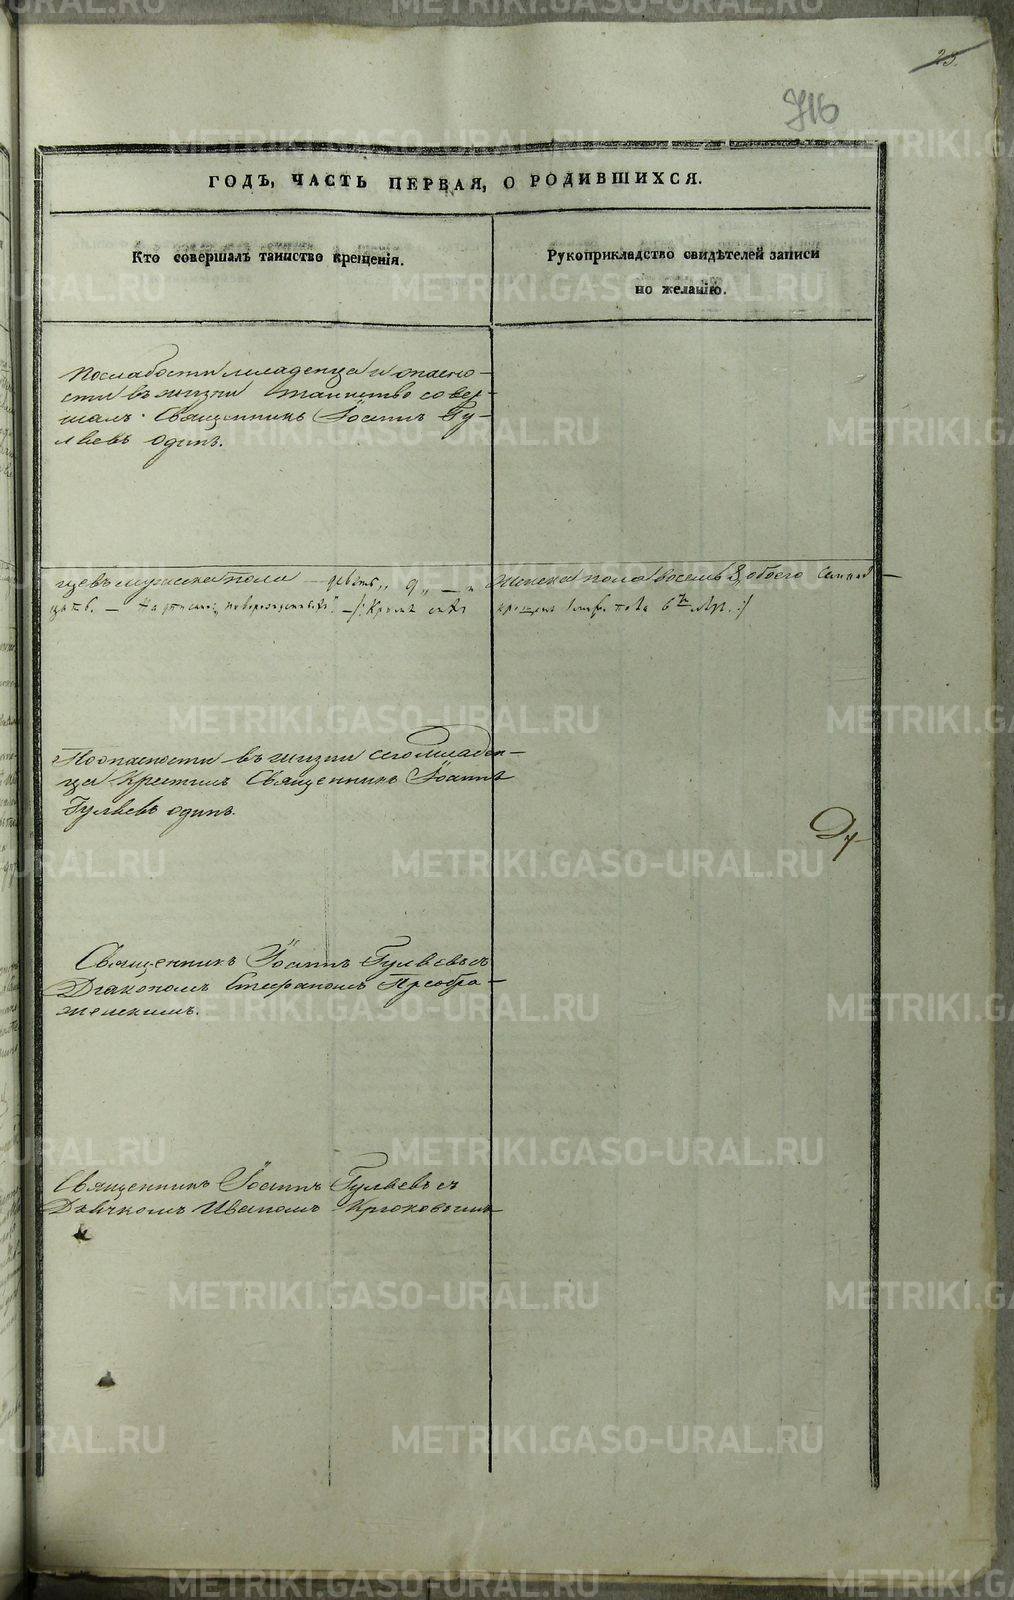 23.
716
ГОДЪ, ЧАСТЬ ПЕРВАЯ, О РОДИВШИХСЯ.
Кто совершалъ таинство крещенія.
Рукоприкладство свидѣтелей записи
по желанію.
По слабости младенца и опасно-
сти въ жизни таинство совер-
шалъ Священникъ Іоаннъ Гу-
ляевъ одинъ.
цевъ мужеска пола — девять „ 9 „ — и женска пола восемь 8, обоего семнад-
цать. —
По опасности въ жизни сего младен-
ца крестилъ Священникъ Іоаннъ
Гуляевъ одинъ.
Ду-
Священникъ Іоаннъ Гуляевъ съ
Діакономъ Стефаномъ Преобра-
женскимъ.
Священникъ Іоаннъ Гуляевъ съ
Дьячкомъ Иваномъ Крюковымъ
METRIKI.GASO-URAL.RU